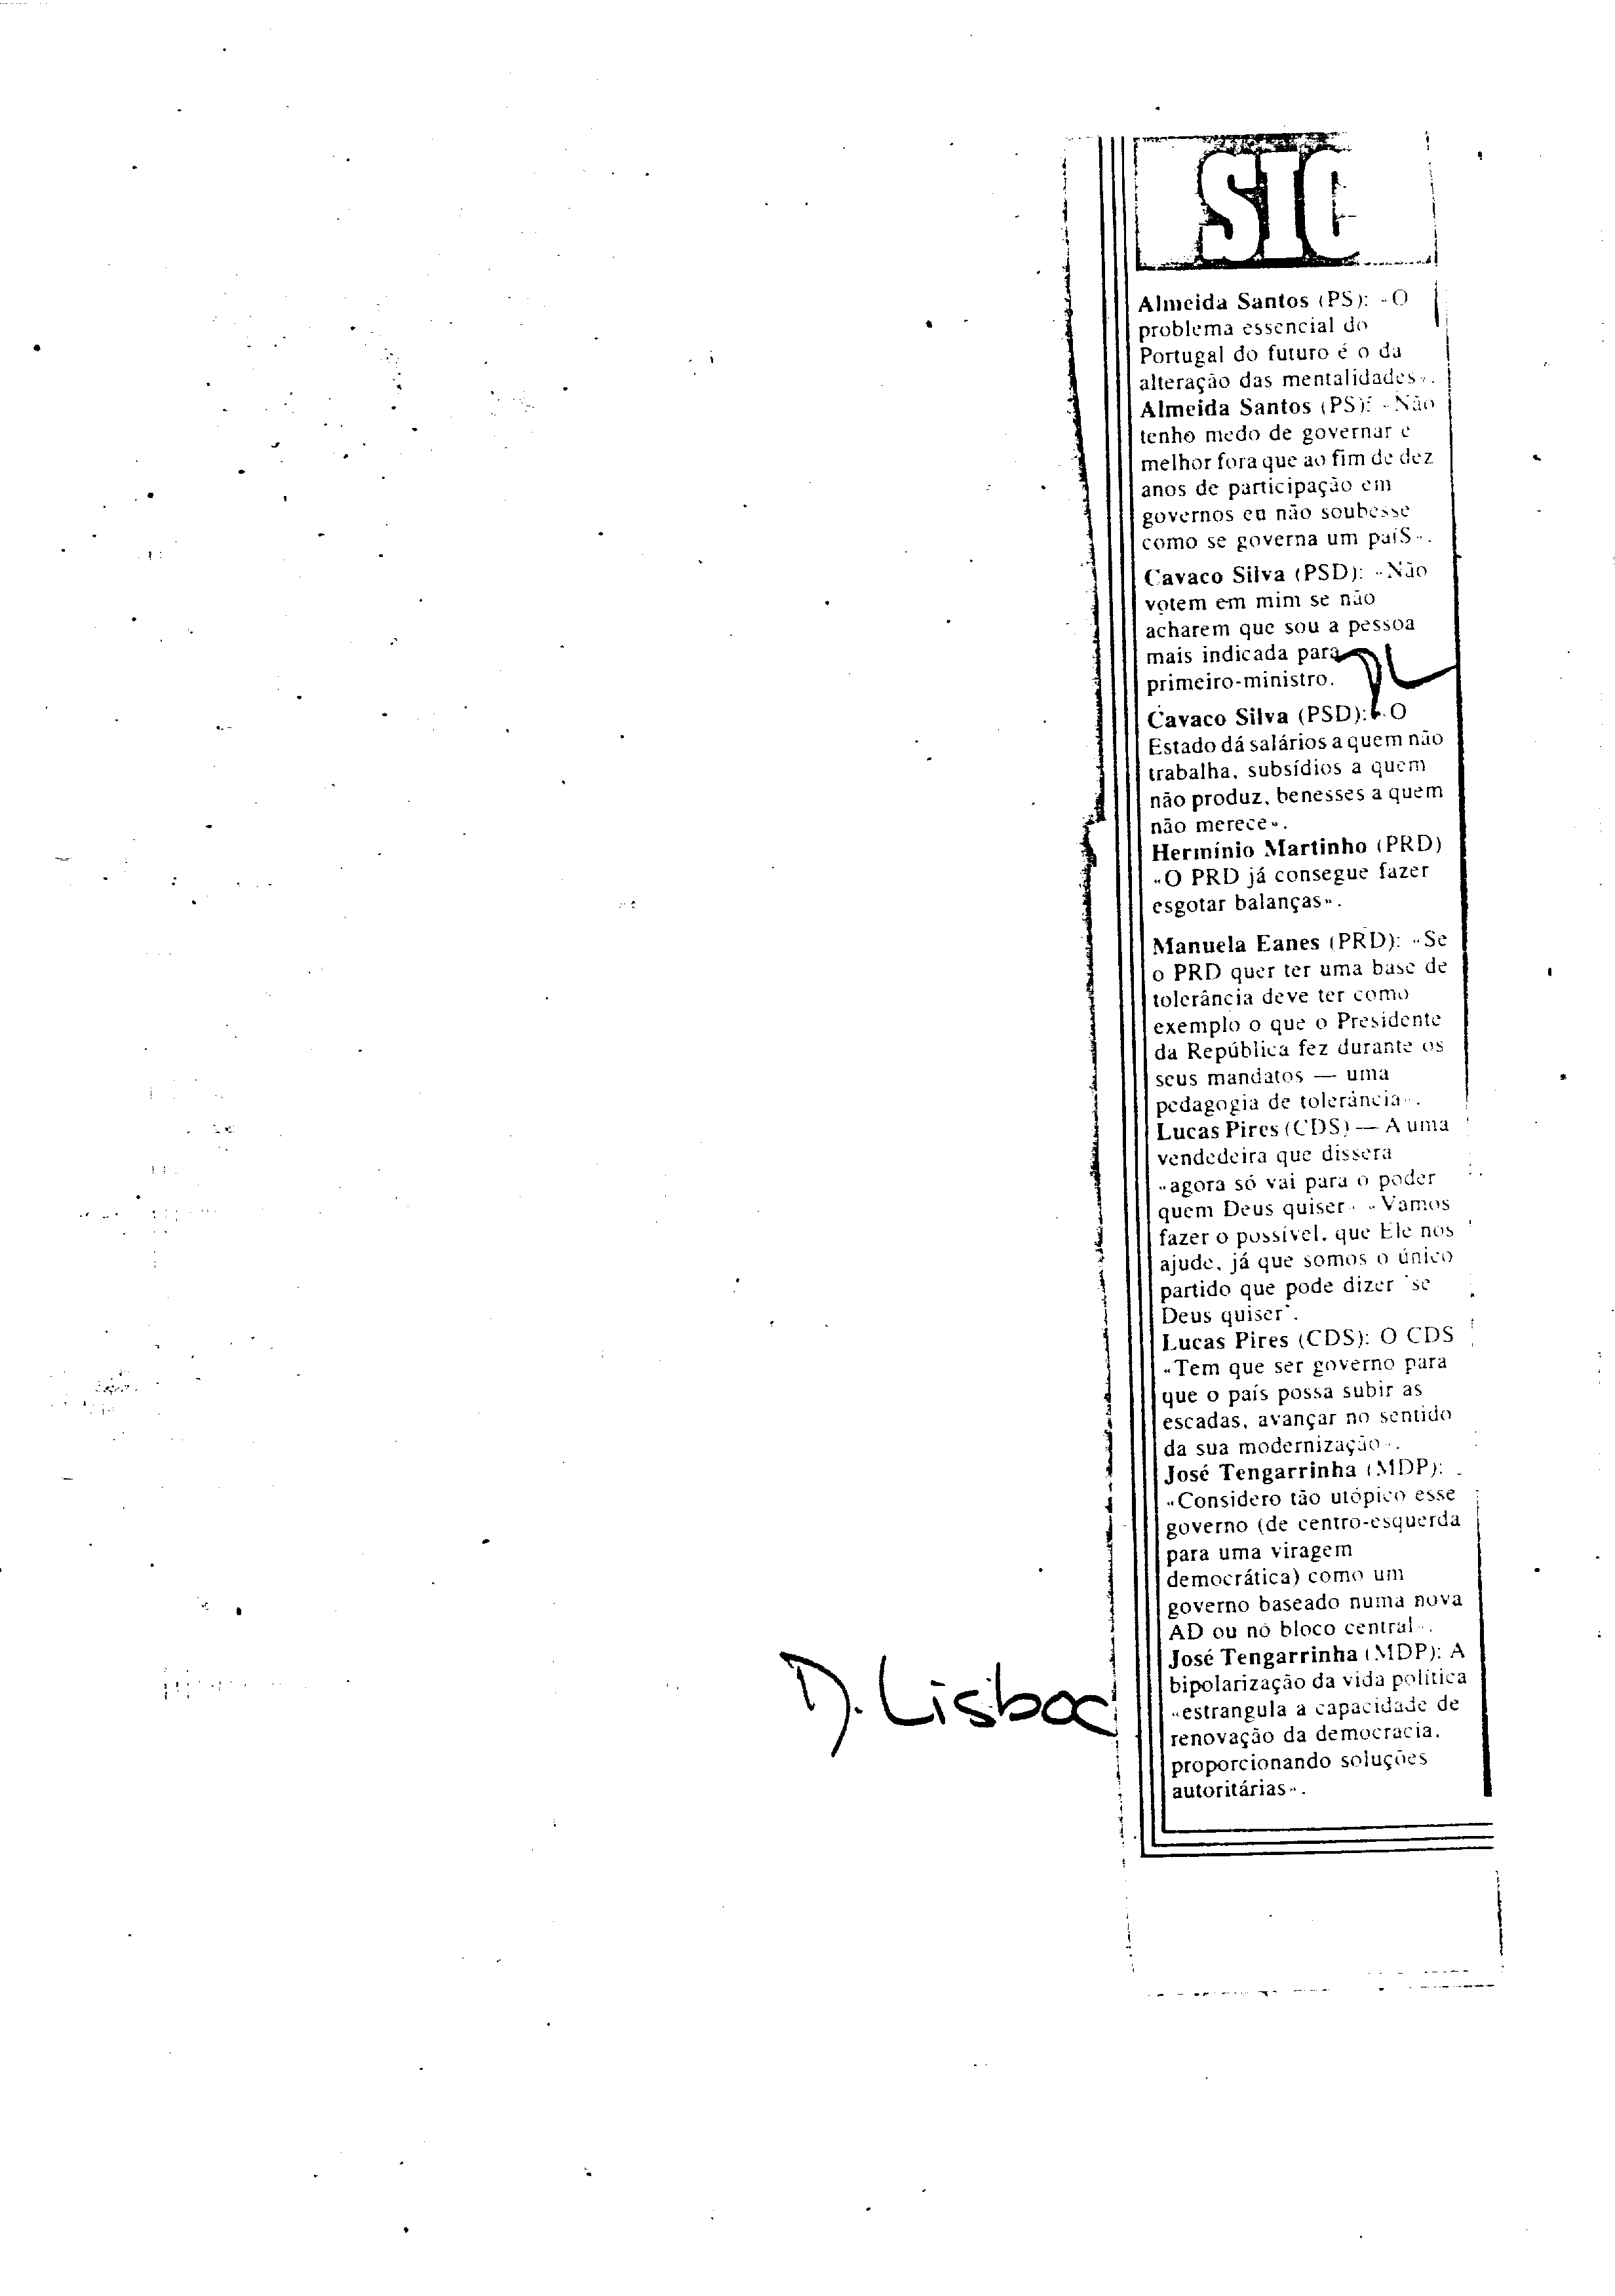 SIC
Almeida Santos (PS): «O
problema essencial do
Portugal do futuro é o da
alteração das mentalidades».
Almeida Santos (PS): «Não
tenho medo de governar e
melhor fora que ao fim de dez
anos de participação em
governos eu não soubesse
como se governa um país».
Cavaco Silva (PSD): «Não
votem em mim se não
acharem que sou a pessoa
mais indicada para
primeiro-ministro.
Cavaco Silva (PSD): «O
Estado dá salários a quem não
trabalha, subsídios a quem
não produz, benesses a quem
não merece».
Hermínio Martinho (PRD)
«O PRD já consegue fazer
esgotar balanças».
Manuela Eanes (PRD): «Se
o PRD quer ter uma base de
tolerância deve ter como
exemplo o que o Presidente
da República fez durante os
seus mandatos — uma
pedagogia de tolerância».
Lucas Pires (CDS) — A uma
vendedeira que dissera
«agora só vai para o poder
quem Deus quiser» «Vamos
fazer o possível, que Ele nos
ajude, já que somos o único
partido que pode dizer 'se
Deus quiser'.
Lucas Pires (CDS): O CDS
«Tem que ser governo para
que o país possa subir as
escadas, avançar no sentido
da sua modernização».
José Tengarrinha (MDP):
«Considero tão utópico esse
governo (de centro-esquerda
para uma viragem
democrática) como um
governo baseado numa nova
AD ou no bloco central».
José Tengarrinha (MDP): A
bipolarização da vida política
«estrangula a capacidade de
renovação da democracia,
proporcionando soluções
autoritárias».
D. Lisboa